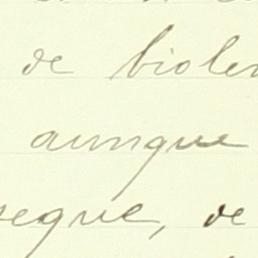 de biolen
aunque
segue, de